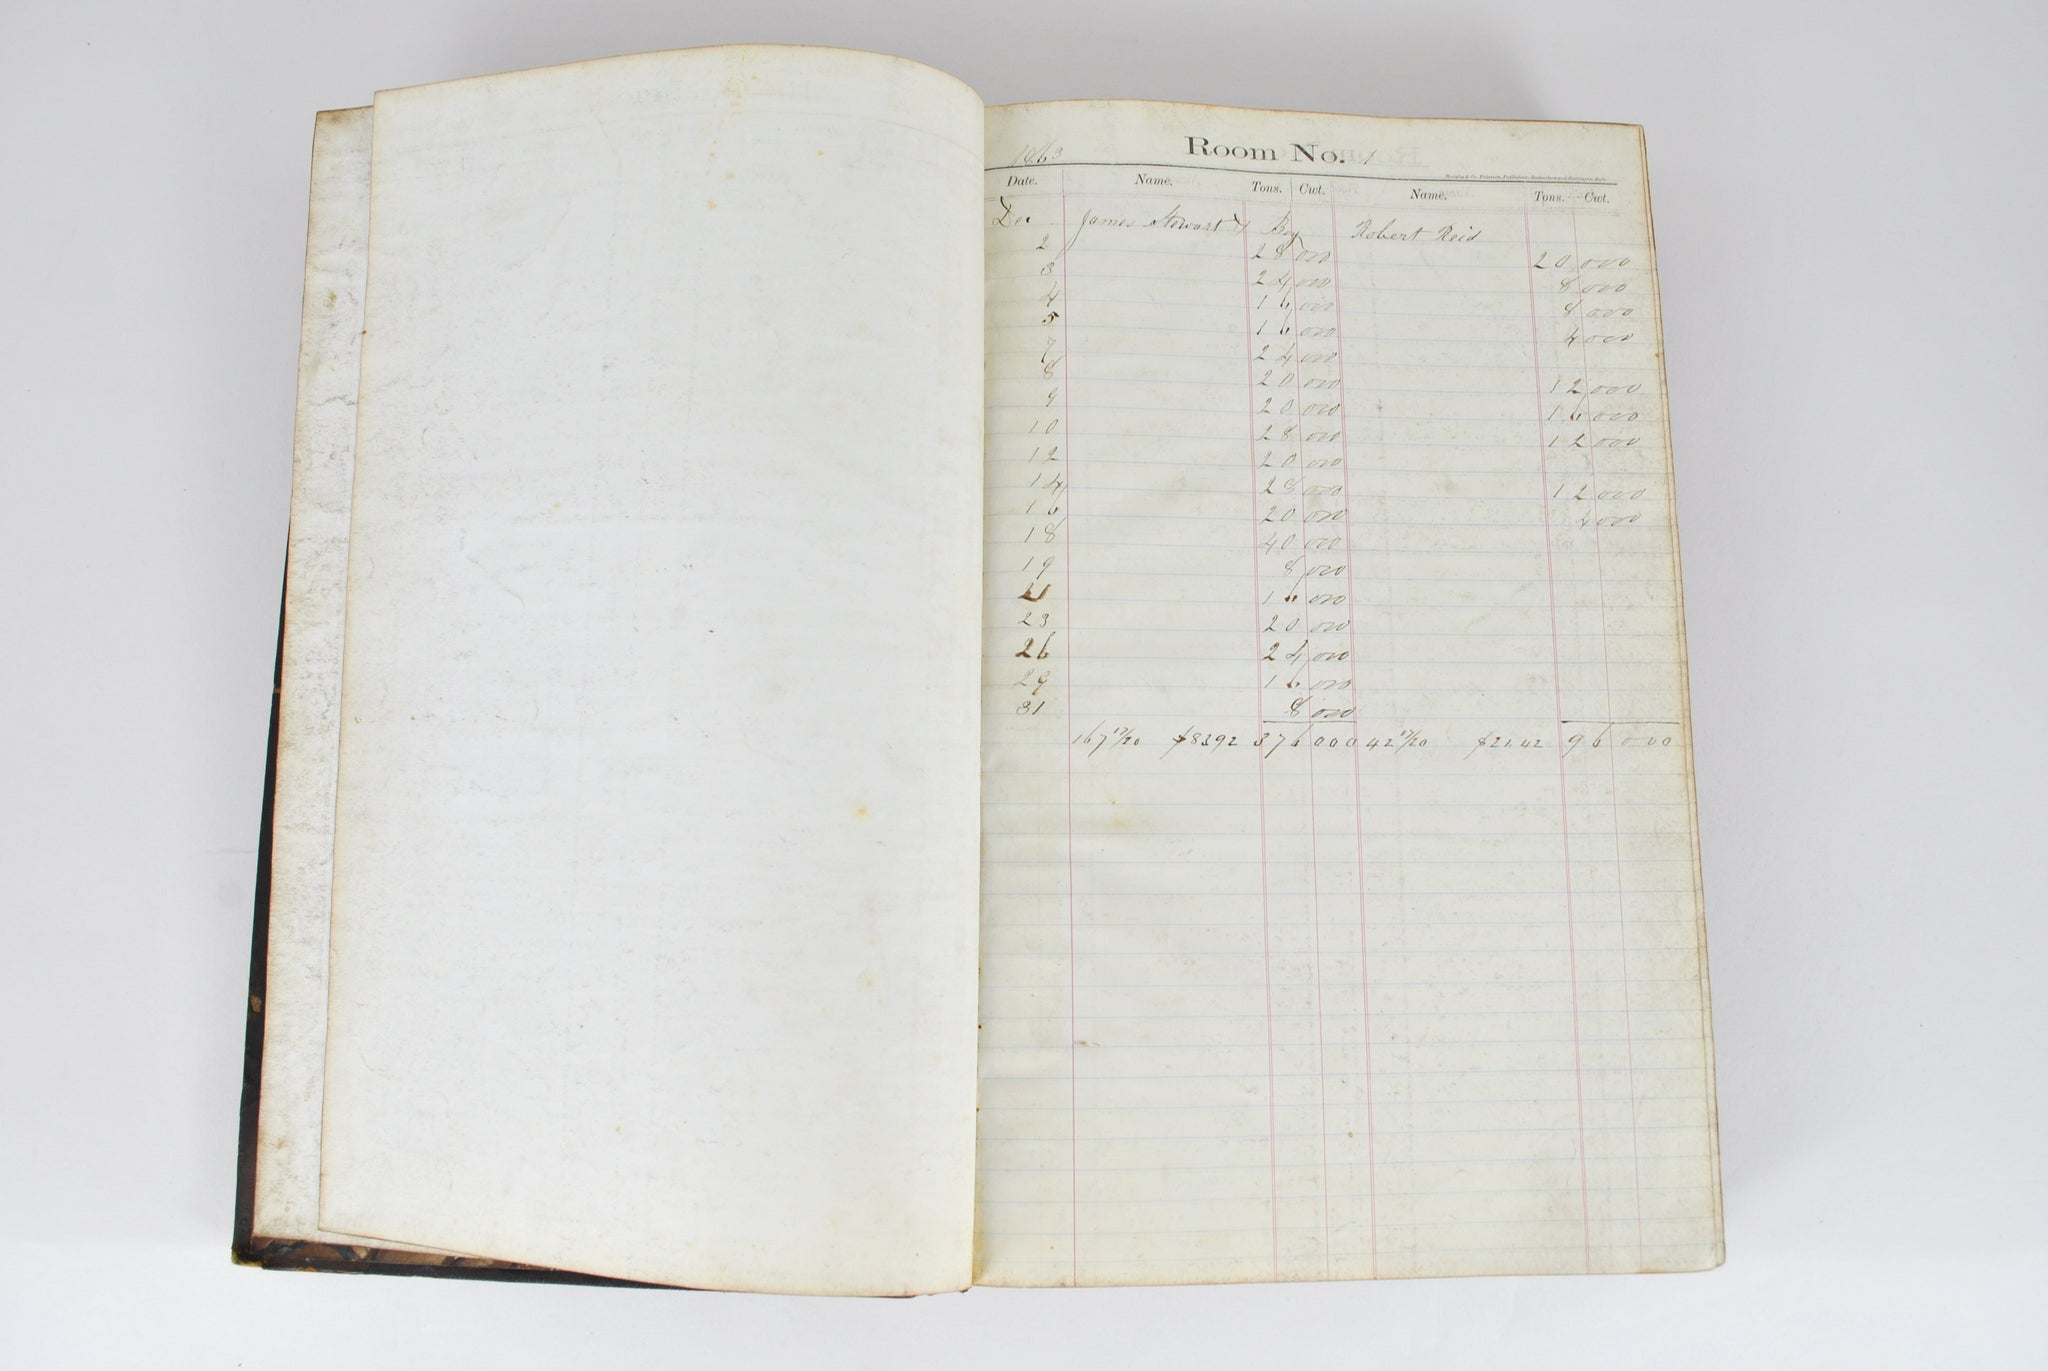 1863 Room No. 1
Murphy & Co. Printers, Publishers, Booksellers and Stationers, Balt.
Date. Name. Tons. Cwt. Name. Tons. Cwt.
Dec James Stewart & Boy Robert Reid
2 28 000 20 000
3 24 000 8 000
4 16 000 8 000
5 16 000 4 000
7 24 000
8 20 000 12 000
9 20 000 16 000
10 28 000 12 000
12 20 000
14 28 000 12 000
16 20 000 4 000
18 40 000
19 8 000
21 16 000
23 20 000
26 24 000
29 16 000
31 8 000
167 17/20 $83.92 376 000 42 17/20 $21.42 96 000